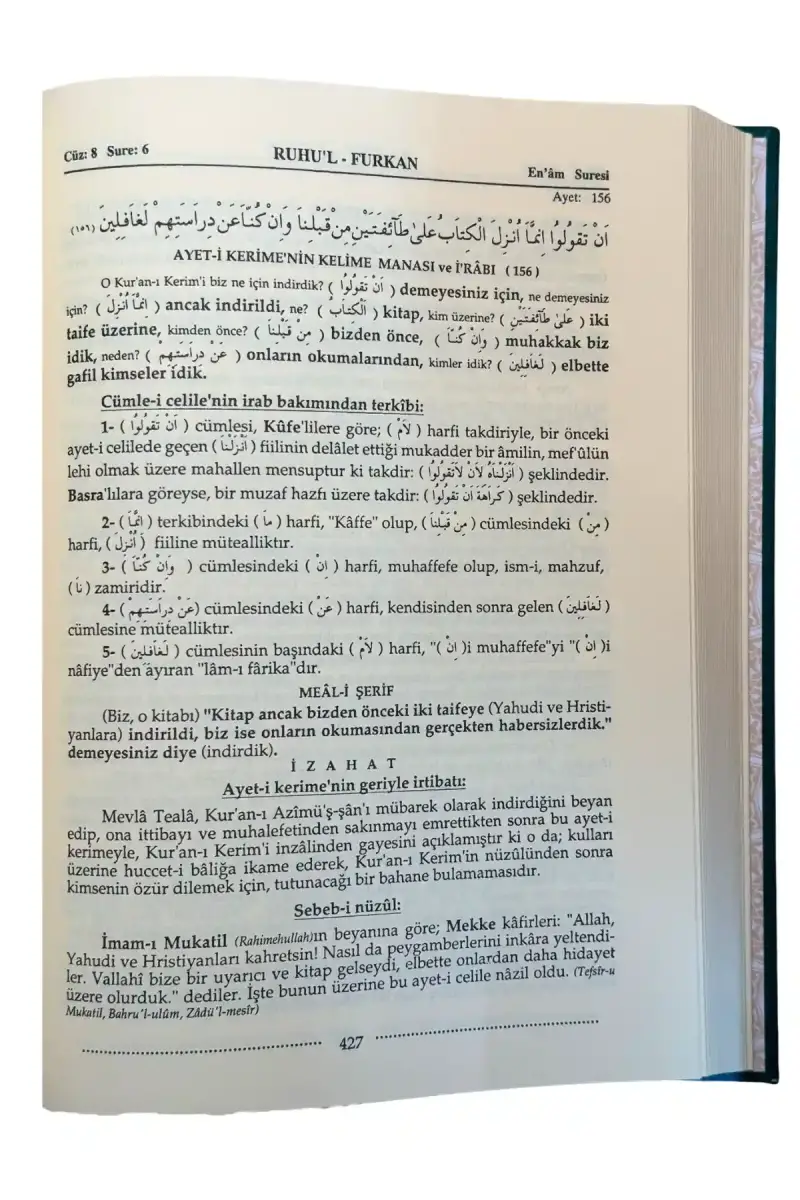 Cüz: 8 Sure: 6 RUHU'L - FURKAN En'âm Suresi
Ayet: 156
اَنْ تَقُولُوا اِنَّمَا اُنْزِلَ الْكِتَابُ عَلٰى طَآئِفَتَيْنِ مِنْ قَبْلِنَا وَاِنْ كُنَّا عَنْ دِرَاسَتِهِمْ لَغَافِلِينَ (١٥٦)
AYET-İ KERİME'NİN KELİME MANASI ve İ'RÂBI ( 156 )
O Kur'an-ı Kerim'i biz ne için indirdik? ( اَنْ تَقُولُوا ) demeyesiniz için, ne demeyesiniz
için? ( اِنَّمَا اُنْزِلَ ) ancak indirildi, ne? ( الْكِتَابُ ) kitap, kim üzerine? ( عَلٰى طَآئِفَتَيْنِ ) iki
taife üzerine, kimden önce? ( مِنْ قَبْلِنَا ) bizden önce, ( وَاِنْ كُنَّا ) muhakkak biz
idik, neden? ( عَنْ دِرَاسَتِهِمْ ) onların okumalarından, kimler idik? ( لَغَافِلِينَ ) elbette
gafil kimseler idik.
Cümle-i celile'nin irab bakımından terkîbi:
1- ( اَنْ تَقُولُوا ) cümlesi, Kûfe'lilere göre; ( لاَمْ ) harfi takdiriyle, bir önceki
ayet-i celilede geçen ( اَنْزَلْنَا ) fiilinin delâlet ettiği mukadder bir âmilin, mef'ûlün
lehi olmak üzere mahallen mensuptur ki takdir: ( اَنْزَلْنَاهُ لاَنْ لاَتَقُولُوا ) şeklindedir.
Basra'lılara göreyse, bir muzaf hazfı üzere takdir: ( كَرَاهَةَ اَنْ تَقُولُوا ) şeklindedir.
2- ( اِنَّمَا ) terkibindeki ( مَا ) harfi, "Kâffe" olup, ( مِنْ قَبْلِنَا ) cümlesindeki ( مِنْ )
harfi, ( اُنْزِلَ ) fiiline müteallıktır.
3- ( وَاِنْ كُنَّا ) cümlesindeki ( اِنْ ) harfi, muhaffefe olup, ism-i, mahzuf,
( نَا ) zamiridir.
4- ( عَنْ دِرَاسَتِهِمْ ) cümlesindeki ( عَنْ ) harfi, kendisinden sonra gelen ( لَغَافِلِينَ )
cümlesine müteallıktır.
5- ( لَغَافِلِينَ ) cümlesinin başındaki ( لاَمْ ) harfi, "( اِنْ )i muhaffefe"yi "( اِنْ )i
nâfiye"den ayıran "lâm-ı fârika"dır.
MEÂL-İ ŞERİF
(Biz, o kitabı) "Kitap ancak bizden önceki iki taifeye (Yahudi ve Hristi-
yanlara) indirildi, biz ise onların okumasından gerçekten habersizlerdik."
demeyesiniz diye (indirdik).
İ Z A H A T
Ayet-i kerime'nin geriyle irtibatı:
Mevlâ Tealâ, Kur'an-ı Azîmü'ş-şân'ı mübarek olarak indirdiğini beyan
edip, ona ittibayı ve muhalefetinden sakınmayı emrettikten sonra bu ayet-i
kerimeyle, Kur'an-ı Kerim'i inzâlinden gayesini açıklamıştır ki o da; kulları
üzerine huccet-i bâliğa ikame ederek, Kur'an-ı Kerim'in nüzûlünden sonra
kimsenin özür dilemek için, tutunacağı bir bahane bulamamasıdır.
Sebeb-i nüzûl:
İmam-ı Mukatil (Rahimehullah)ın beyanına göre; Mekke kâfirleri: "Allah,
Yahudi ve Hristiyanları kahretsin! Nasıl da peygamberlerini inkâra yeltendi-
ler. Vallahî bize bir uyarıcı ve kitap gelseydi, elbette onlardan daha hidayet
üzere olurduk." dediler. İşte bunun üzerine bu ayet-i celile nâzil oldu. (Tefsîr-u
Mukatil, Bahru'l-ulûm, Zâdü'l-mesîr)
427